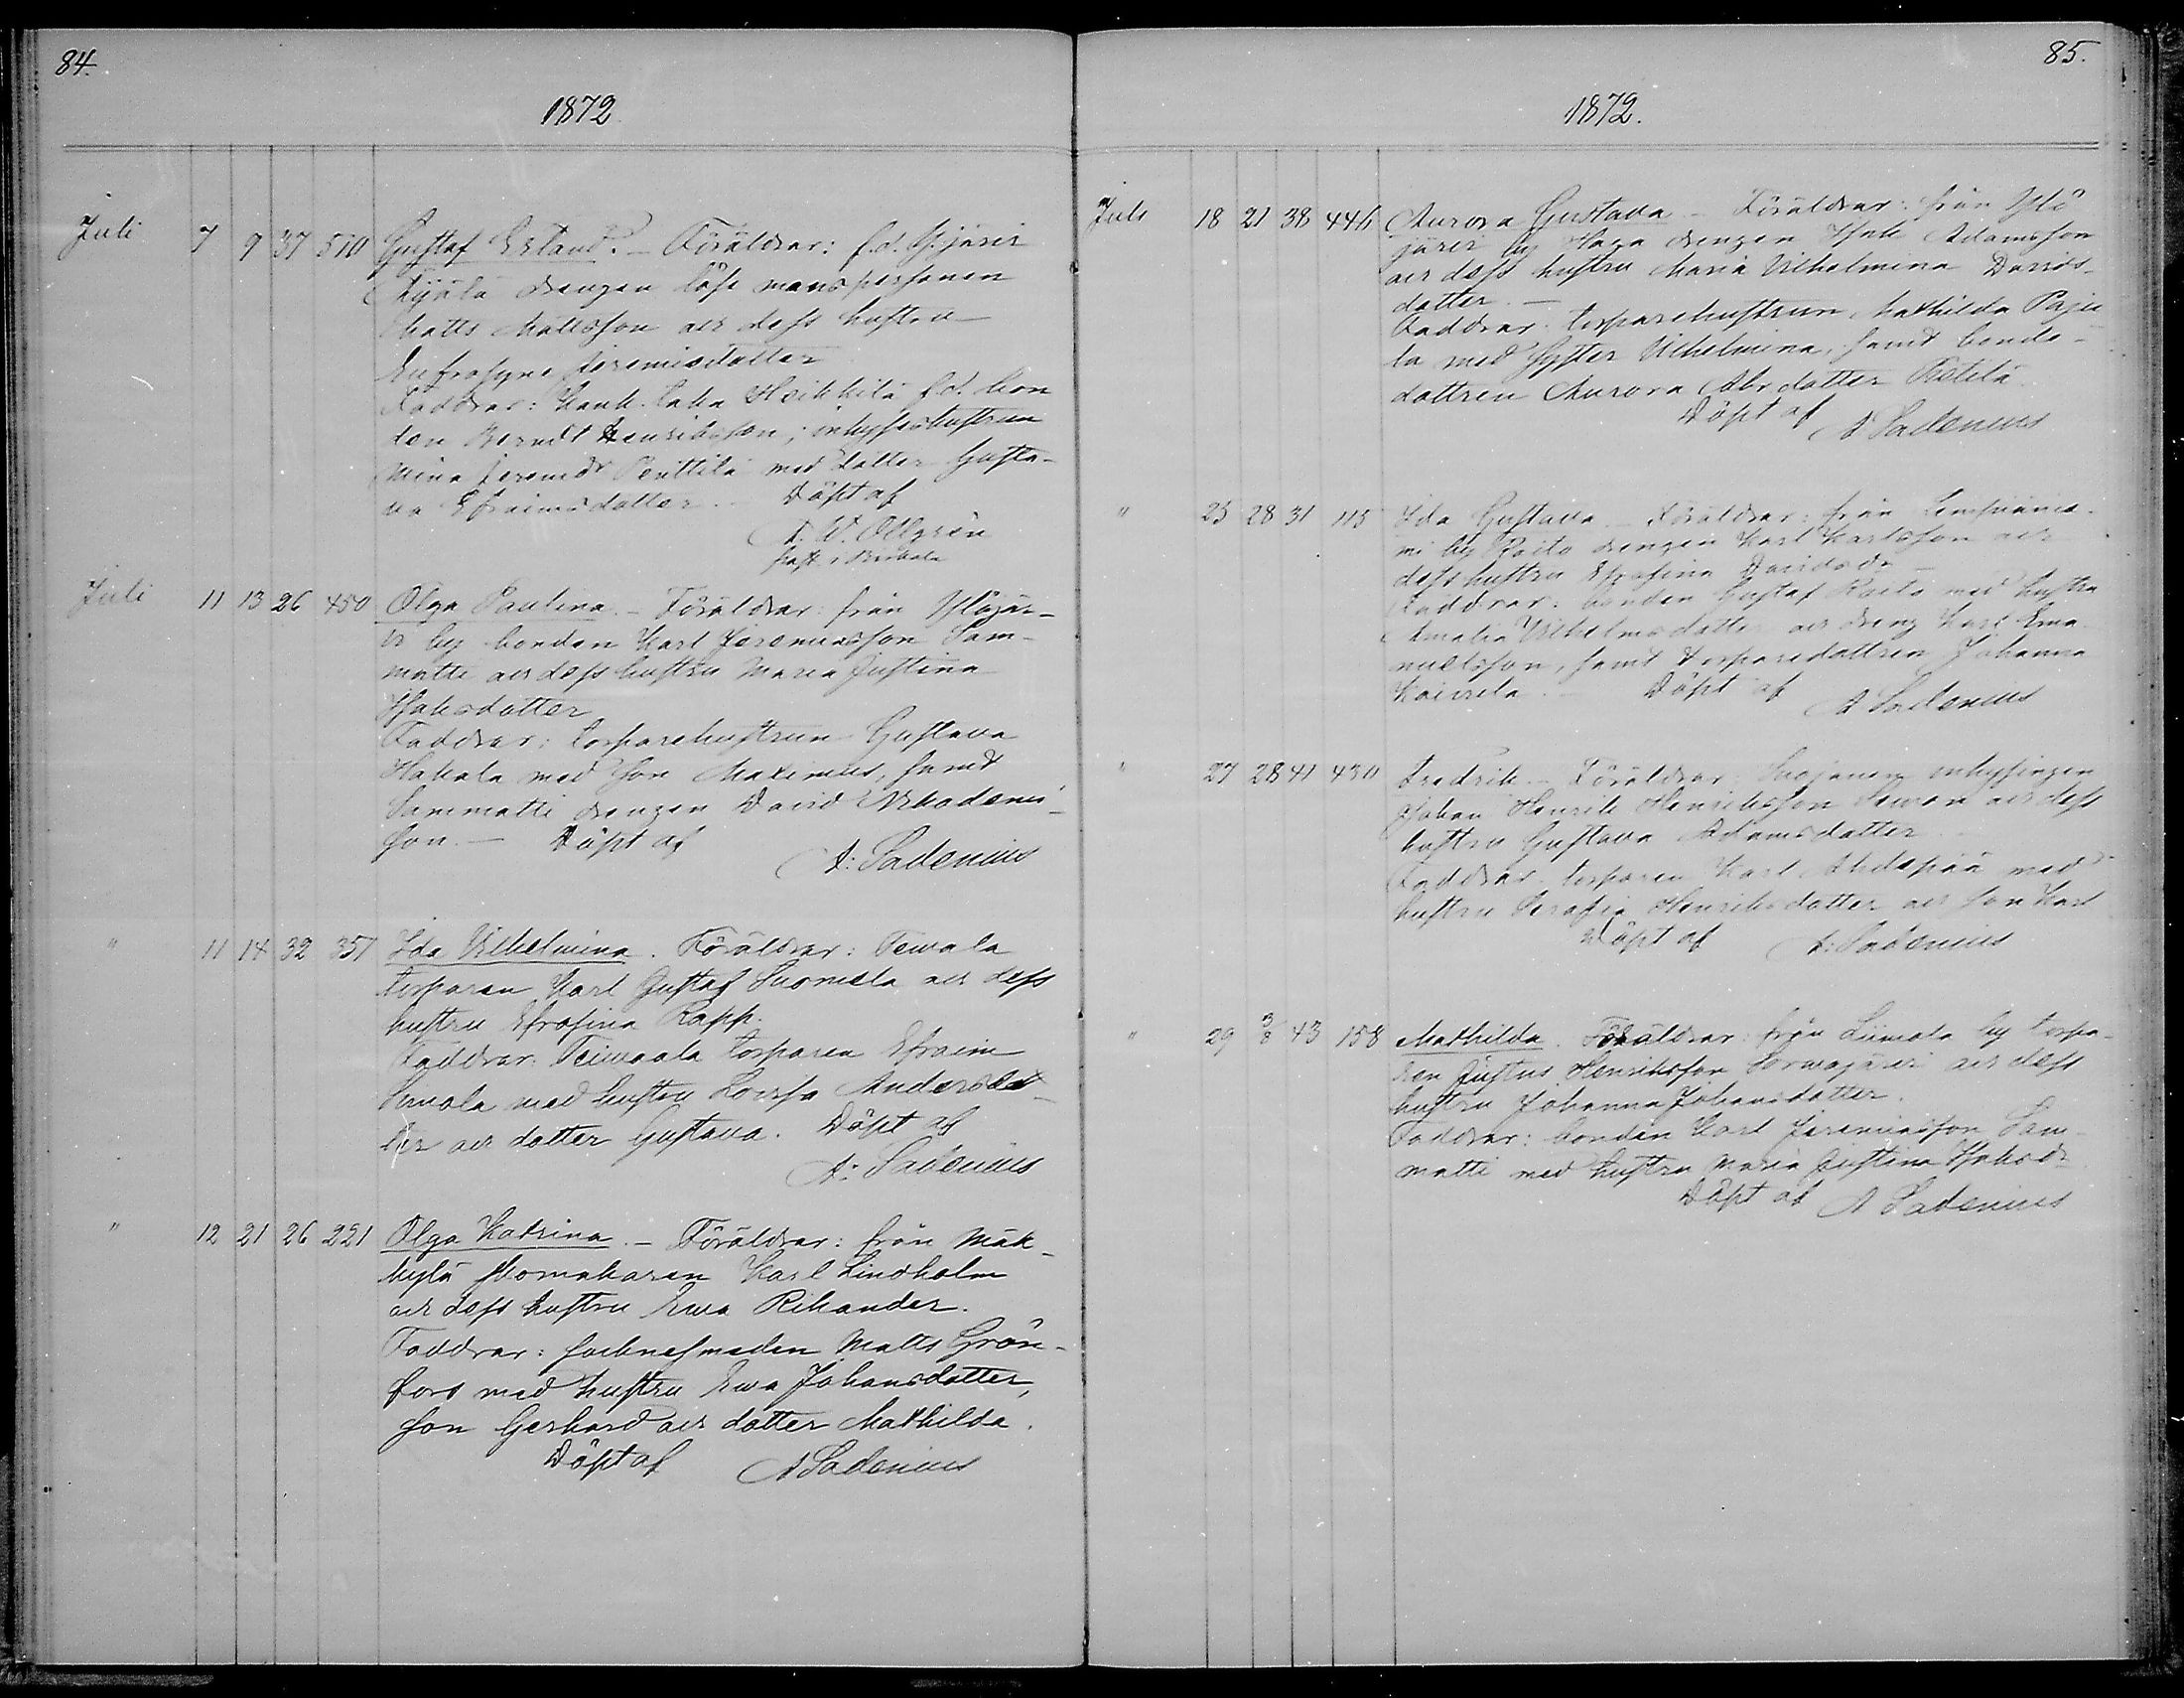 84.
1872.
Juli 7 9 37 510 Gustaf Erland. - Föräldrar: f.d. Y:järvi
Kyölä drengen löse manspersonen
Matts Mattsson och dess hustru
Eufrosyne Jeremiedotter
Faddrar: Heikkilä f.d. bon
den Berndt Henriksson, inhyseshustrun
Mina Jeremdr Penttilä med dotter Gusta-
va Efraimsdotter. - Döpt af
A. W. Ollgrén
past. i Birkala
Juli 11 13 26 450 Olga Paulina. - Föräldrar: från Ylöjär-
vi by bonden Karl Jeremiasson Sam-
matti och dess hustru Maria Justina
Isaksdotter
Faddrar: torparehustrun Gustava
Hakala med son Maximus, samt
Sammatti drengen David Nikodemi-
son. - Döpt af
A: Sadenius
" 11 14 32 357 Ida Vilhelmina. Föräldrar: Teivala
torparen Karl Gustaf Suomela och dess
hustru Efrosina Rapp.
Faddrar: Teivaala torparen Efraim
Simola med hustru Lovisa Andersdot-
ter och dotter Gustava. Döpt af
A: Sadenius
" 12 21 26 221 Olga Katrina. - Föräldrar: från Mäk-
kylä skomakaren Karl Lindholm
och dess hustru Eva Rikander.
Faddrar: socknesmeden Matts Grön-
fors med hustru Eva Johansdotter,
son Gerhard och dotter Mathilda.
Döpt af A Sadenius
85.
1872.
Juli 18 21 38 446 Aurora Gustava - Föräldrar: från Ylö
järvi by Haga drengen Isak Adamsson
och dess hustru Maria Vilhelmina Davids-
dotter. -
Faddrar: torparehustrun Mathilda Paju
la med syster Vilhelmina, samt bonde-
dottren Aurora Abr.dotter Kotilä.
Döpt af A Sadenius
" 25 28 31 115 Ida Gustava. - Föräldrar: från Lempiänie-
mi by Raito drengen Karl Karlsson och
dess hustru Efrosina Davidsdr -
Faddrar: bonden Gustaf Raito med hustru
Amalia Vilhelmsdotter och dreng Karl Ema
nuelsson, samt torparedottren Johanna
Koivula. - Döpt af A Sadenius
" 27 28 41 450 Fredrik. - Föräldrar: inhysingen
Johan Henrik Henriksson och dess
hustru Gustava Adamsdotter.
Faddrar: torparen Karl Ahdepää med
hustru Serafia Henriksdotter och son Karl
Döpt af A: Sadenius
" 29 3/8 43 158 Mathilda. Föräldrar: från Liimola by torpa-
ren Justus Henriksson Sorvajärvi och dess
hustru Johanna Johansdotter.
Faddrar: bonden Karl Jeremiasson Sam-
matti med hustru Maria Justina Isaksdr
Döpt af A Sadenius